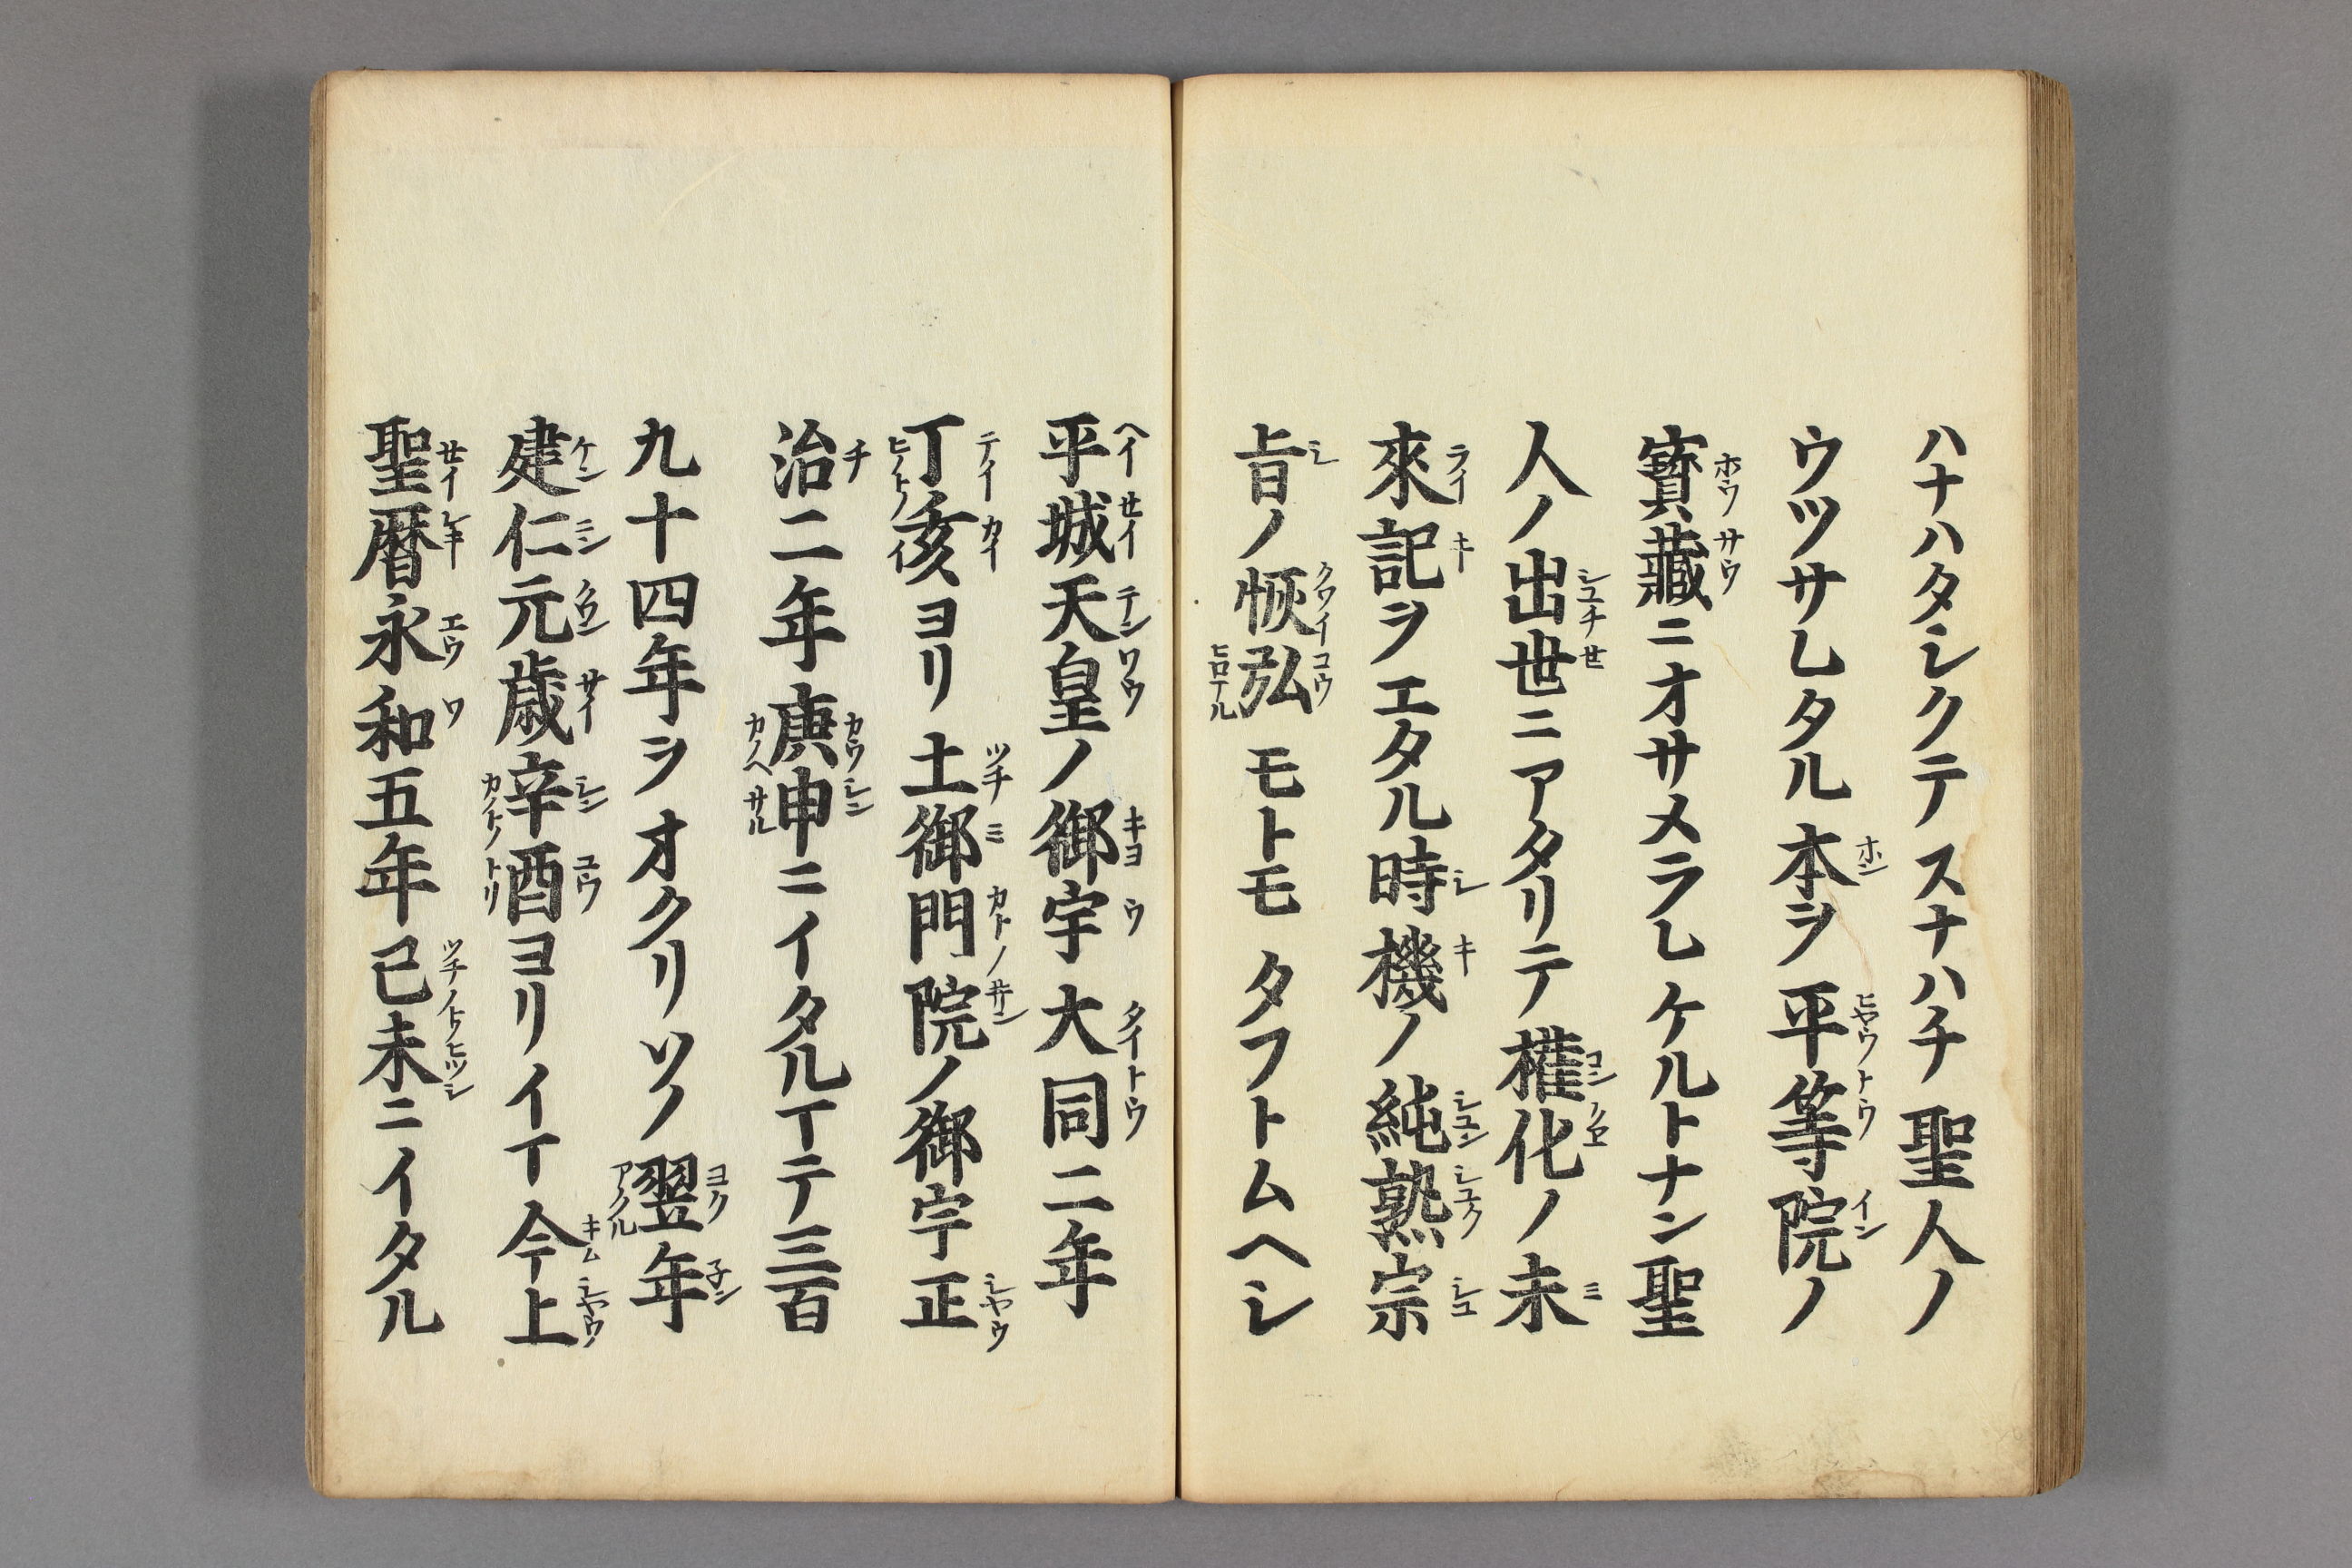 ハナハタシクテスナハチ聖人ノ
ウツサレタル本ヲ平等院ノ
寳藏ニオサメラレケルトナン聖
人ノ出世ニアタリテ權化ノ未
來記ヲエタル時機ノ純熟宗
旨ノ恢弘モトモタフトムヘシ
平城天皇ノ御宇大同二年
丁亥ヨリ土御門院ノ御宇正
治二年庚申ニイタルマテ三百
九十四年ヲオクリソノ翌年
建仁元歳辛酉ヨリイマ今上
聖暦永和五年己未ニイタル